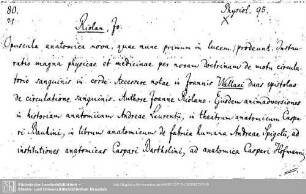 80. Physiol. 95.
Riolan. Jo.
Opuscula anatomica nova, quae nunc primum in lucem prodeunt. Instau-
ratio magna physicae et medicinae per novam doctrinam de motu circula-
torio sanguinis in corde. Accessere notae in Joannis Wallaei duas epistolas
de circulatione sanguinis. Authore Joanne Riolano. Ejusdem animadversiones
in historiam anatomicam Andreae Laurentii, in theatrum anatomicum Caspa-
ri Bauhini, in librum anatomicum de fabrica humana Andreae Spigelii, ad
institutiones anatomicas Caspari Bartholini, ad anatomica Caspari Hofmanni,